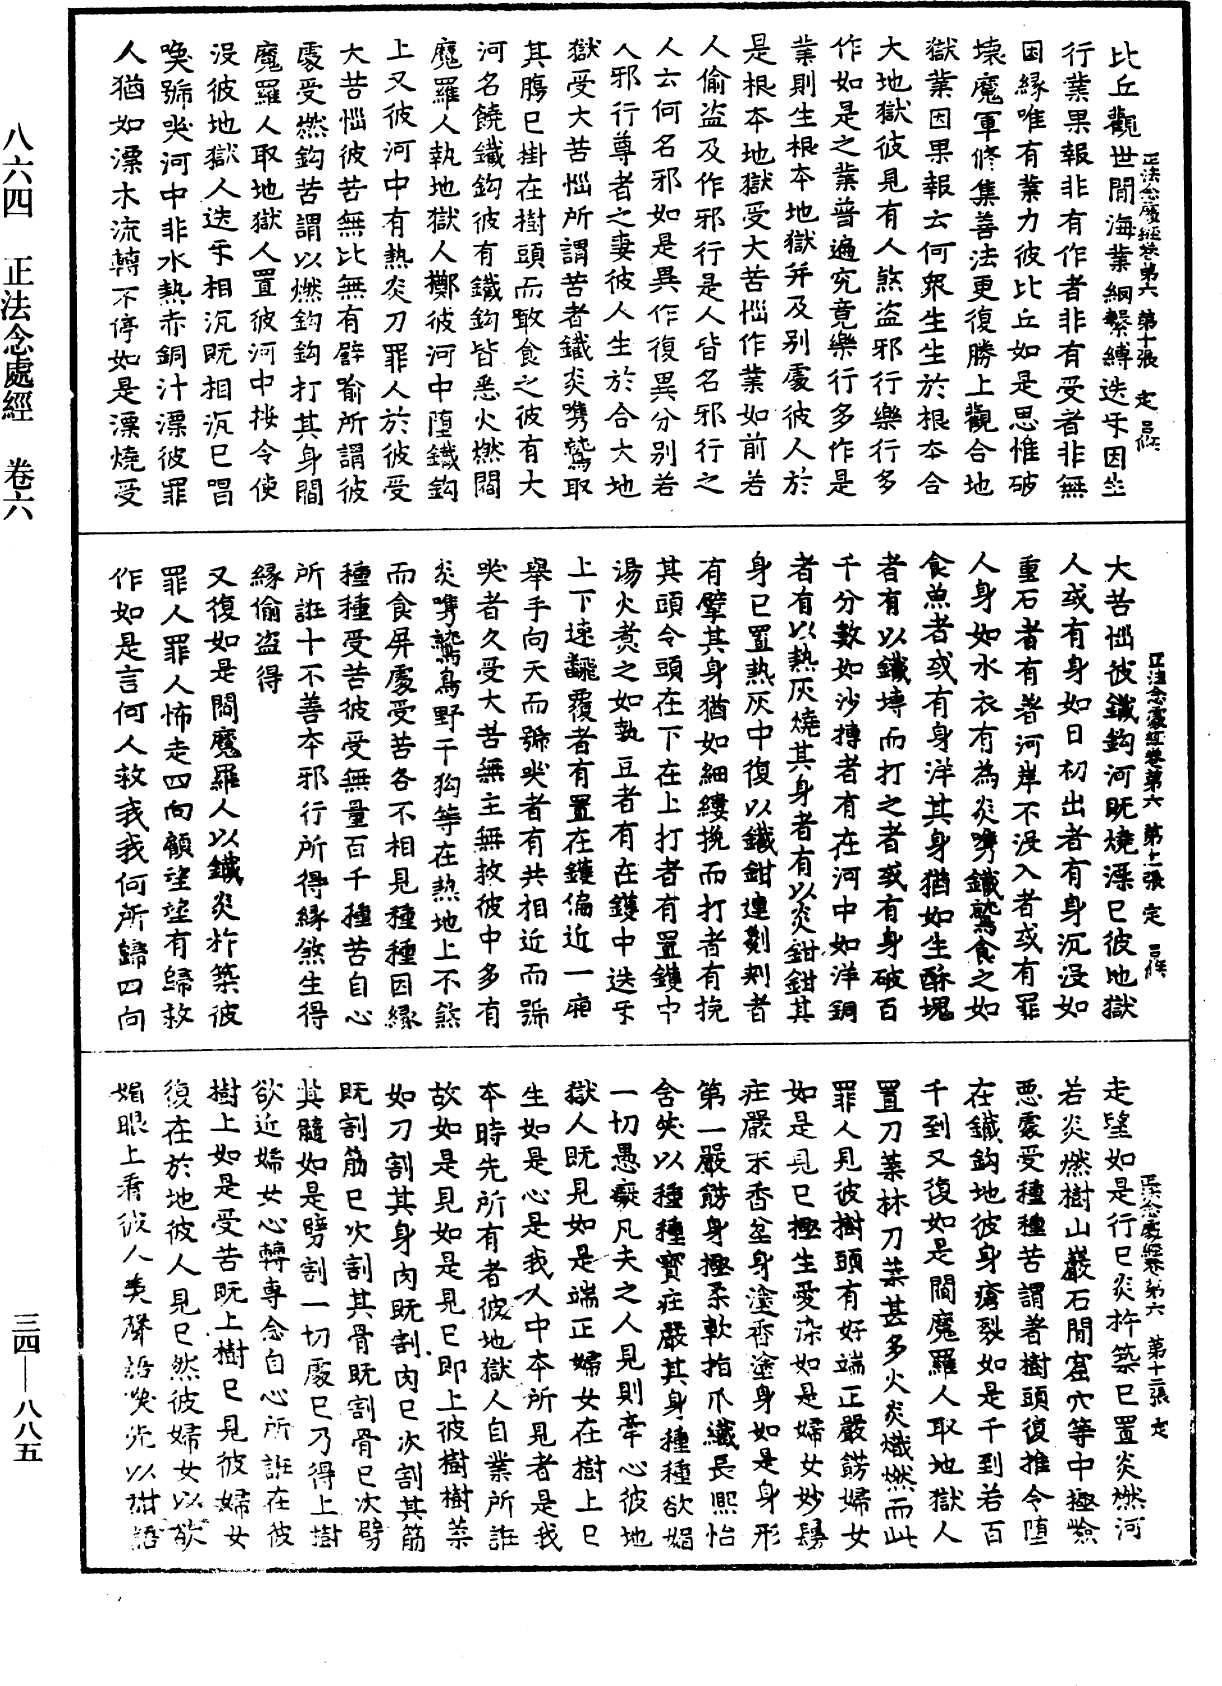 比丘觀世間海業網繫縛迭互因生
行業果報非有作者非有受者非無
因緣唯有業力彼比丘如是思惟破
壞魔軍修集善法更復勝上觀合地
獄業因果報云何眾生生於根本合
大地獄彼見有人煞盜邪行樂行多
作如是之業普遍究竟樂行多作是
業則生根本地獄并及別處彼人於
是根本地獄受大苦惱作業如前若
人偷盜及作邪行是人皆名邪行之
人云何名邪如是異作復異分別若
人邪行尊者之妻彼人生於合大地
獄受大苦惱所謂苦者鐵炎嘴鷲取
其腸已掛在樹頭而噉食之彼有大
河名饒鐵鈎彼有鐵鈎皆悉火燃閻
魔羅人執地獄人擲彼河中墮鐵鈎
上又彼河中有熱炎刀罪人於彼受
大苦惱彼苦無比無有譬喻所謂彼
處受燃鈎苦謂以燃鈎鈎打其身閻
魔羅人取地獄人置彼河中挼令使
沒彼地獄人迭互相沉既相沉已唱
喚號哭河中非水熱赤銅汁漂彼罪
人猶如漂木流轉不停如是漂燒受
正法念處經卷第六 第十張 定
大苦惱彼鐵鈎河既燒漂已彼地獄
人或有身如日初出者有身沉沒如
重石者有著河岸不沒入者或有罪
人身如水衣有為炎嘴鐵鷲食之如
食魚者或有身洋其身猶如生酥塊
者有以鐵塼而打之者或有身破百
千分數如沙摶者有在河中如洋銅
者有以熱灰燒其身者有以炎鉗鉗其
身已置熱灰中復以鐵鉗連㓨刺者
有擘其身猶如細縷挽而打者有挽
其頭令頭在下在上打者有置鑊中
湯火煮之如孰豆者有在鑊中迭互
上下速翻覆者有置在鑊偏近一廂
舉手向天而號哭者有共相近而號
哭者久受大苦無主無救彼中多有
炎嘴鷲鳥野干狗等在熱地上不煞
而食屏處受苦各不相見種種因緣
種種受苦彼受無量百千種苦自心
所誑十不善本邪行所得緣煞生得
緣偷盜得
又復如是閻魔羅人以鐵炎杵築彼
罪人罪人怖走四向顧望望有歸救
作如是言何人救我我何所歸四向
正法念處經卷第六 第十一張 定
走望如是行已炎杵築已置炎燃河
若炎燃樹山巖石間窟穴等中極嶮
惡處受種種苦謂著樹頭復推令墮
在鐵鈎地彼身瘡裂如是千到若百
千到又復如是閻魔羅人取地獄人
置刀葉林刀葉甚多火炎熾燃而此
罪人見彼樹頭有好端正嚴飾婦女
如是見已極生愛染如是婦女妙鬘
莊嚴末香坌身塗香塗身如是身形
第一嚴飾身極柔軟指爪纖長熙怡
含笑以種種寶莊嚴其身種種欲媚
一切愚癡凡夫之人見則牽心彼地
獄人既見如是端正婦女在樹上已
生如是心是我人中本所見者是我
本時先所有者彼地獄人自業所誑
故如是見如是見已即上彼樹樹葉
如刀割其身肉既割肉已次割其筋
既割筋已次割其骨既割骨已次劈
其髓如是劈割一切處已乃得上樹
欲近婦女心轉專念自心所誑在彼
樹上如是受苦既上樹已見彼婦女
復在於地彼人見已然彼婦女以欲
媚眼上看彼人美聲語喚先以甜語
正法念處經卷第六 第十二張 定
八六四 正法念處經 卷六
三四—八八五